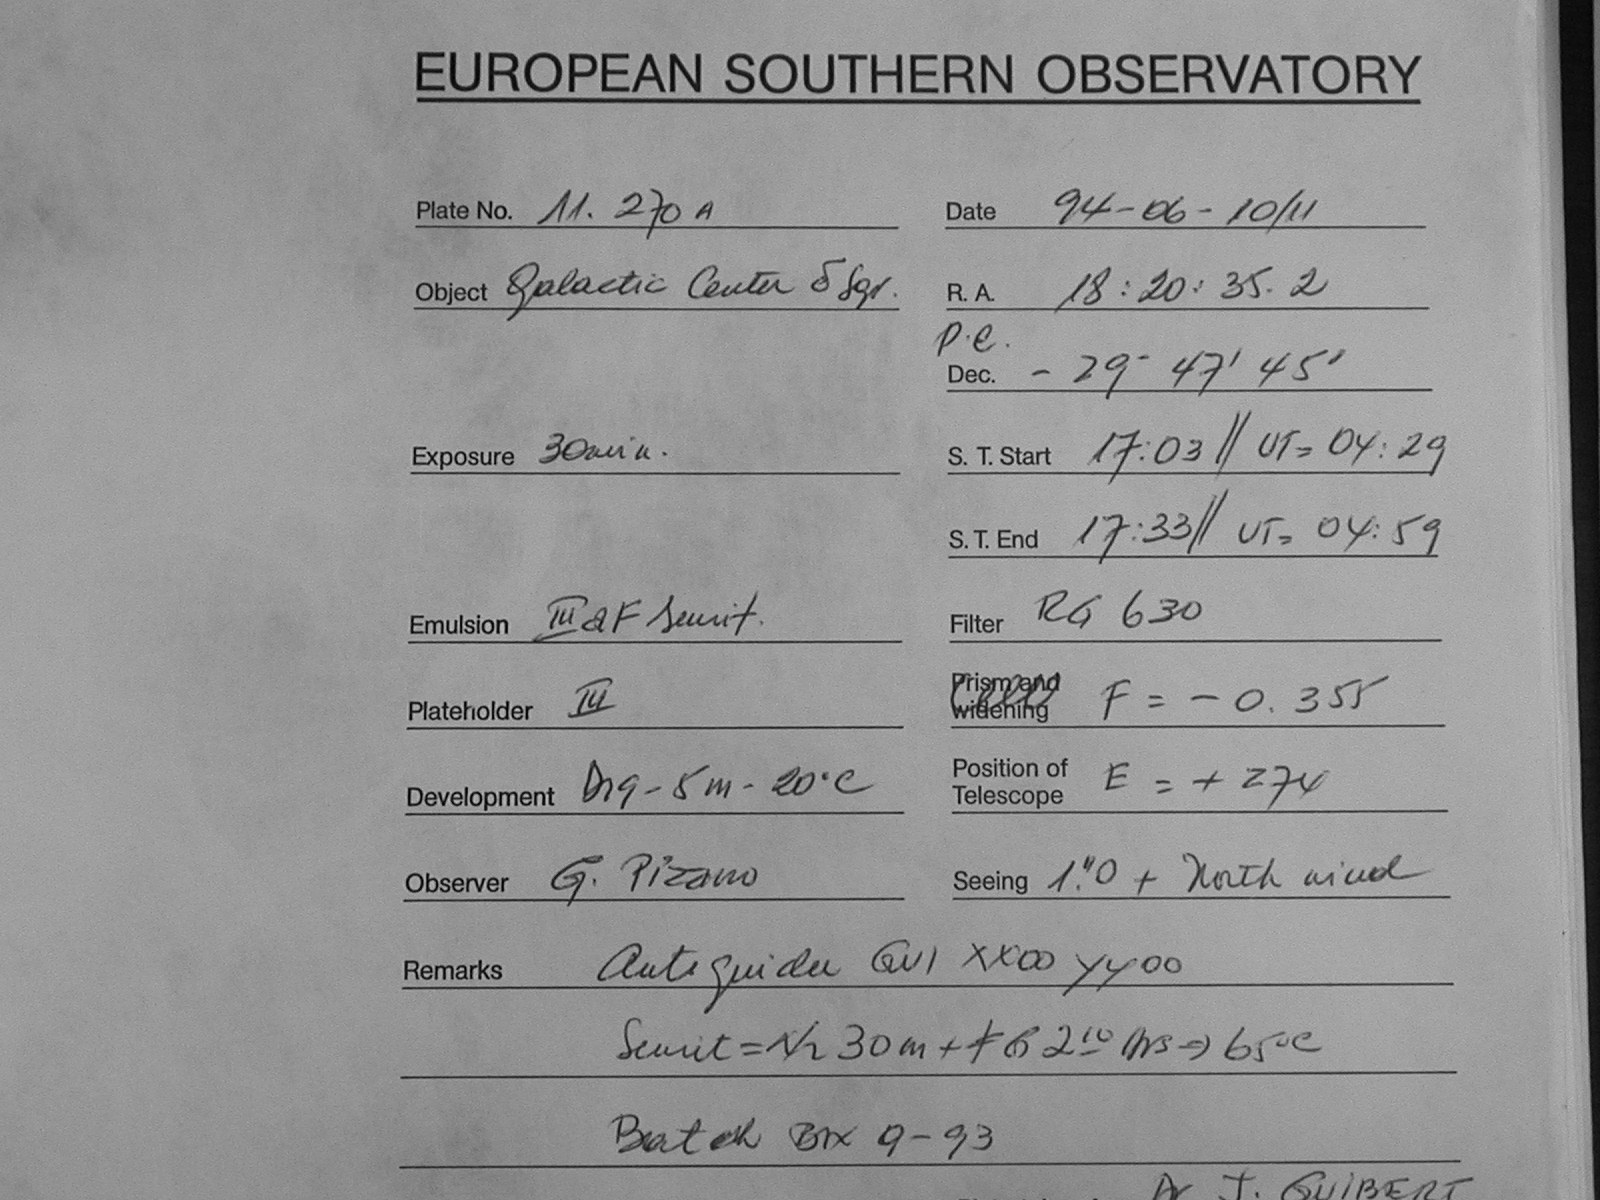 EUROPEAN SOUTHERN OBSERVATORY
Plate No. 11. 270 A
Date 94-06-10/11
Object Galactic Center δ Sgr.
R. A. 18:20:35.2
P.E.
Dec. - 29° 47' 45"
Exposure 30min.
S. T. Start 17:03 // UT= 04:29
S. T. End 17:33 // UT= 04:59
Emulsion III a F Sensit.
Filter RG 630
Plateholder III
Prism and widening F = - 0. 355
Development D19 - 5 m - 20°C
Position of Telescope E = + 274
Observer G. Pizarro
Seeing 1."0 + North wind
Remarks Autoguider GV1 XX00 YY00
Sensit = N2 30 m + FG 2 10 hrs → 65°C
Batch Box 9-93
Dr J. GUIBERT